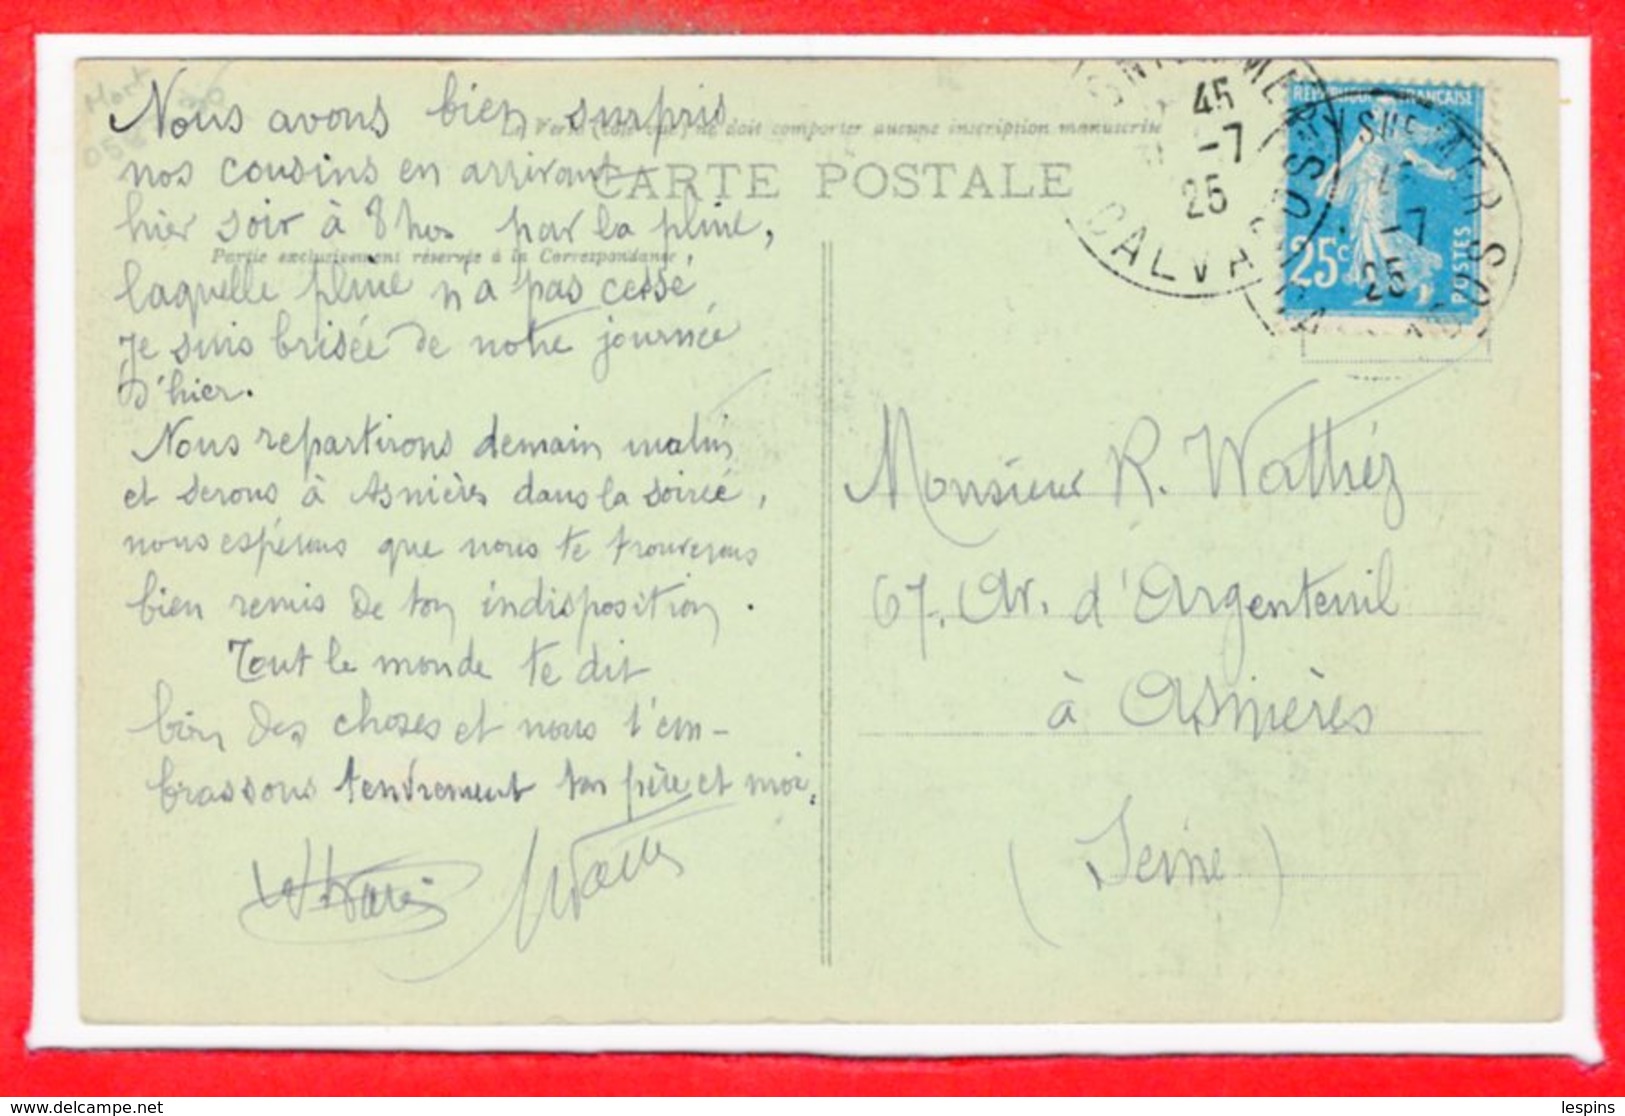 Mort
Nous avons bien surpris
nos cousins en arrivant
hier soir à 8 hrs par la pluie,
laquelle pluie n'a pas cessé
Je suis brisée de notre journée
d'hier.
Nous repartirons demain matin
et serons à Asnières dans la soirée,
nous espérons que nous te trouverons
bien remis de ton indisposition.
Tout le monde te dit
bien des choses et nous t'em-
brassons tendrement ton père et moi.
Le Verso (côté vue) ne doit comporter aucune inscription manuscrite
CARTE POSTALE
Partie exclusivement réservée à la Correspondance
45
-7
25
CALVADOS
RÉPUBLIQUE FRANÇAISE
25c
POSTES
S/MER
-7
25
Monsieur R. Wattiez
67, Av. d'Argenteuil
à Asnières
(Seine)
lespins
www.delcampe.net